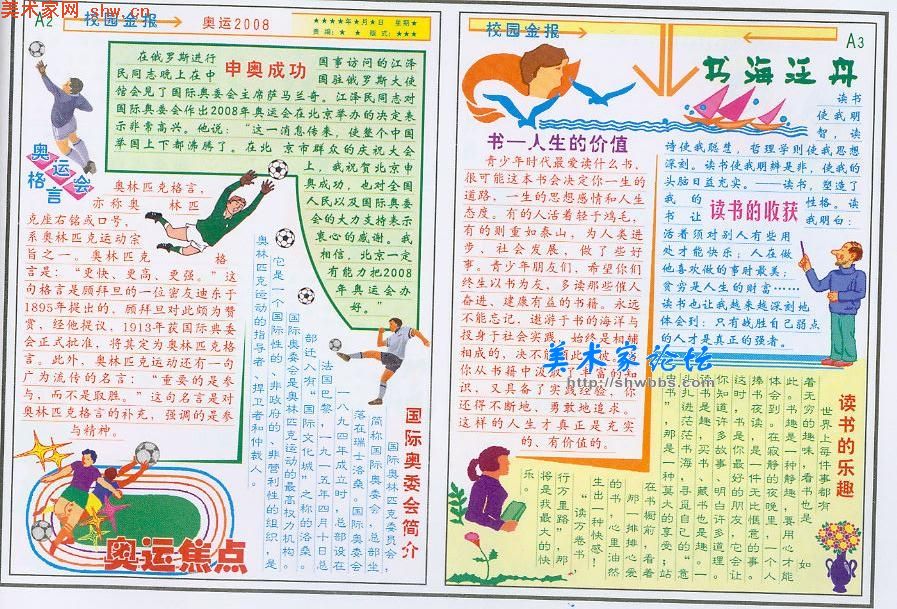 美术家网 shw.cn
A2
校园金报
奥运2008
★★★★年★月★日 星期★
责编：★ ★ 版式：★★★
申奥成功
在俄罗斯进行
国事访问的江泽
民同志晚上在中
国驻俄罗斯大使
馆会见了国际奥委会主席萨马兰奇。江泽民同志对
国际奥委会作出2008年奥运会在北京举办的决定表
示非常高兴。他说：“这一消息传来，使整个中国
举国上下都沸腾了。在北 京市群众的庆祝大会
上，我祝贺北京申
奥成功，也对全国
人民以及国际奥委
会的大力支持表示
衷心的感谢。我
相信，北京一定
有能力把2008
年奥运会办
好。”
奥运会
格言
奥林匹克格言，
亦称奥 林匹
克座右铭或口号，
系奥林匹克运动宗
旨之一。奥林匹克 格
言是：“更快、更高、更强。”这
句格言是顾拜旦的一位密友迪东于
1895年提出的，顾拜旦对此颇为赞
赏，经他提议，1913年获国际奥委
会正式批准，将其定为奥林匹克格
言。此外，奥林匹克运动还有一句
广为流传的名言：“重要的是参
与，而不是取胜。”这句名言是对
奥林匹克格言的补充，强调的是参
与精神。
国际奥委会简介
国际奥林匹克委员会，
简称国际奥委会，总部坐
落在瑞士洛桑。国际奥委会
一八九四年成立时，总部设在
法国巴黎，一九一五年四月十日总
部迁入有“国际文化城”之称的洛桑。
国际奥委会是奥林匹克运动的最高权力机构。
它是一个国际性的、非政府的、非营利性的组织，是
奥林匹克运动的指导者、捍卫者和仲裁人。
奥运焦点
校园金报
A3
书海泛舟
书—人生的价值
青少年时代最爱读什么书，
很可能这本书会决定你一生的
道路，一生的思想感情和人生
态度。有的人活着轻于鸿毛，
有的则重如泰山，为人类进
步、社会发展，做了些好
事。青少年朋友们，希望你们
终生以书为友，多读那些催人
奋进、建康有益的书籍。永远
不能忘记，遨游于书的海洋与
投身于社会实践，始终是相辅
相成的，决不能顾此失彼。
你从书籍中汲取丰富的知
识，又具备了实践经验，你
还得不断地、勇敢地追求。
这样的人生才真正是充实
的、有价值的。
读书的收获
读书
使我明
智，读
诗使我聪慧，哲理学则使我思想
深刻。读书使我明辨是非，使我的
头脑日益充实。——读书，塑造了
我的 性格。读
书让 我明白：
活着须对别人有些用
处才能快乐；人在做
他喜欢做的事时最美；
贫穷是人生的财富……
读书也让我越来越深刻地
体会到：只有战胜自己弱点
的人才是真正的强者。
美术家论坛
http://shwbbs.com
读书的乐趣
世界上每件事都有
着无穷的趣味，看书也是如
此。书是一种静趣，要用心才能
体会到。在寂静的夜晚里，一个人
捧书夜读，是一件无比惬意的事。
读书是你最好的朋友，它会让
你知道许多故事，明白许多道理。
读书是趣，买书、藏书也是趣。一
头扎进茫茫书海，寻觅自己的“意
中书”，那是一种莫大的享受；站
在书橱前，看着
那一排排心爱
的书，心里油然
生出一种快感！
“读万卷书，
行万里路”，那
将是我最大的快
乐。